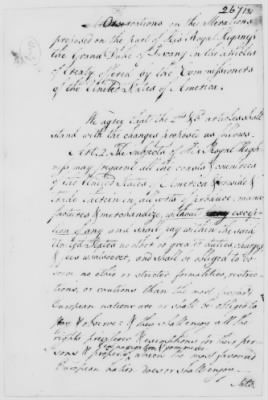 267
Observations on the Alterations
proposed on the part of his Royal Highness
the Grand Duke of Tuscany in the articles
of treaty offered by the Commissioners
of the United States of America.
We agree that the articles shall
stand with the changes proposed as follows.
Art. 2. The subjects of his Royal High-
ness may frequent all the coasts & countries
of the United States of America & reside &
trade there in all sorts of produce, manu-
factures & merchandize, without excep-
tion of any and shall pay within the said
United States no other or greater duties, charges
& fees whatsoever, and shall be obliged to ob-
serve no other or stricter formalities, restric-
tions, or cautions than the most favored
European nations are or shall be obliged to
pay & observe: & they shall enjoy all the
rights privileges & exemptions for their per-
sons & property in navigation & commerce
which the most favoured
European nation does or shall enjoy.
Art. 3.